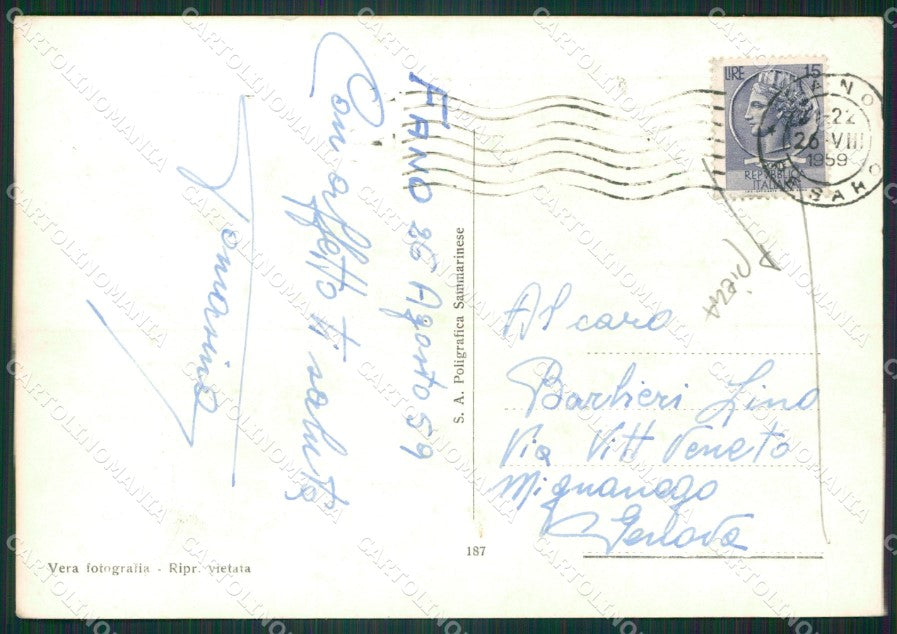 FANO 26 Agosto 59
Con affetto ti saluto
LIRE 15
REPUBBLICA
ITALIANA
FANO
22
26·VIII
1959
Al caro
Barbieri Lino
Via Vitt Veneto
Mignanego
Genova
S. A. Poligrafica Sammarinese
187
Vera fotografia - Ripr. vietata
CARTOLINOMANIA